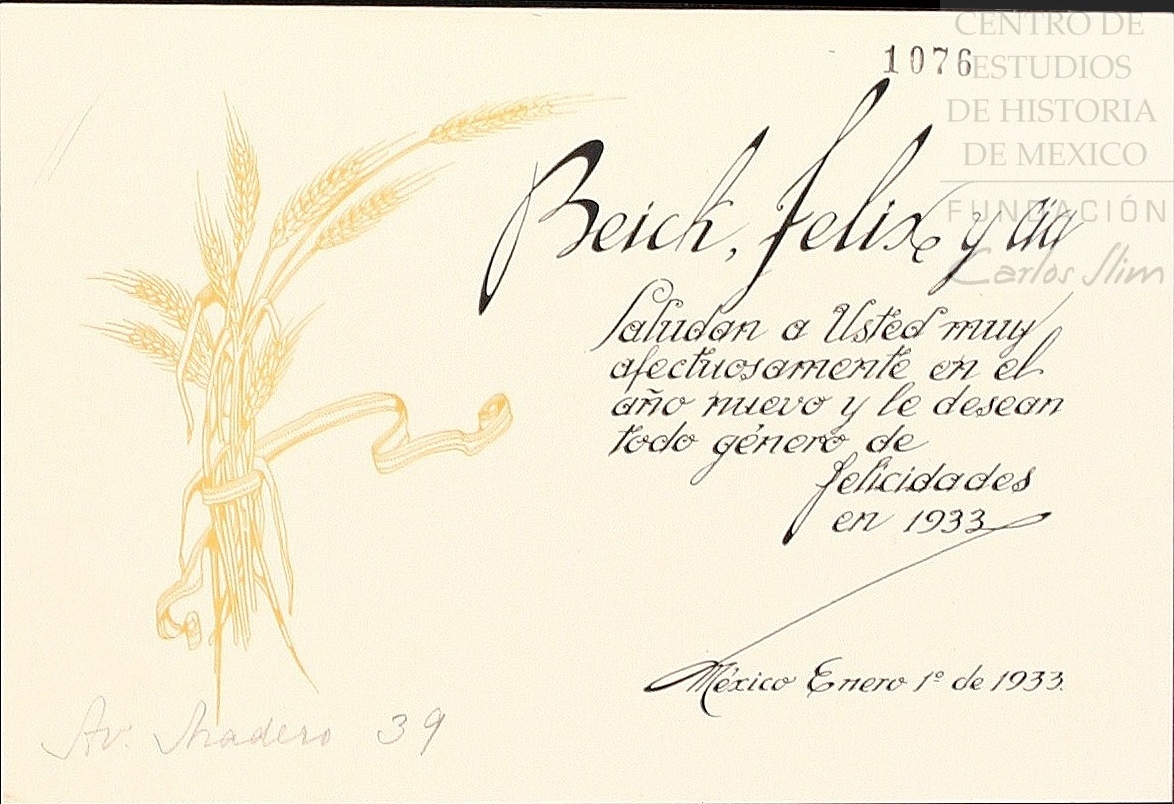 1076
CENTRO DE
ESTUDIOS
DE HISTORIA
DE MEXICO
FUNDACIÓN
Carlos Slim
Beick, Felix y Cía
Saludan a Usted muy
afectuosamente en el
año nuevo y le desean
todo género de
felicidades
en 1933
México Enero 1º de 1933.
Av. Madero 39